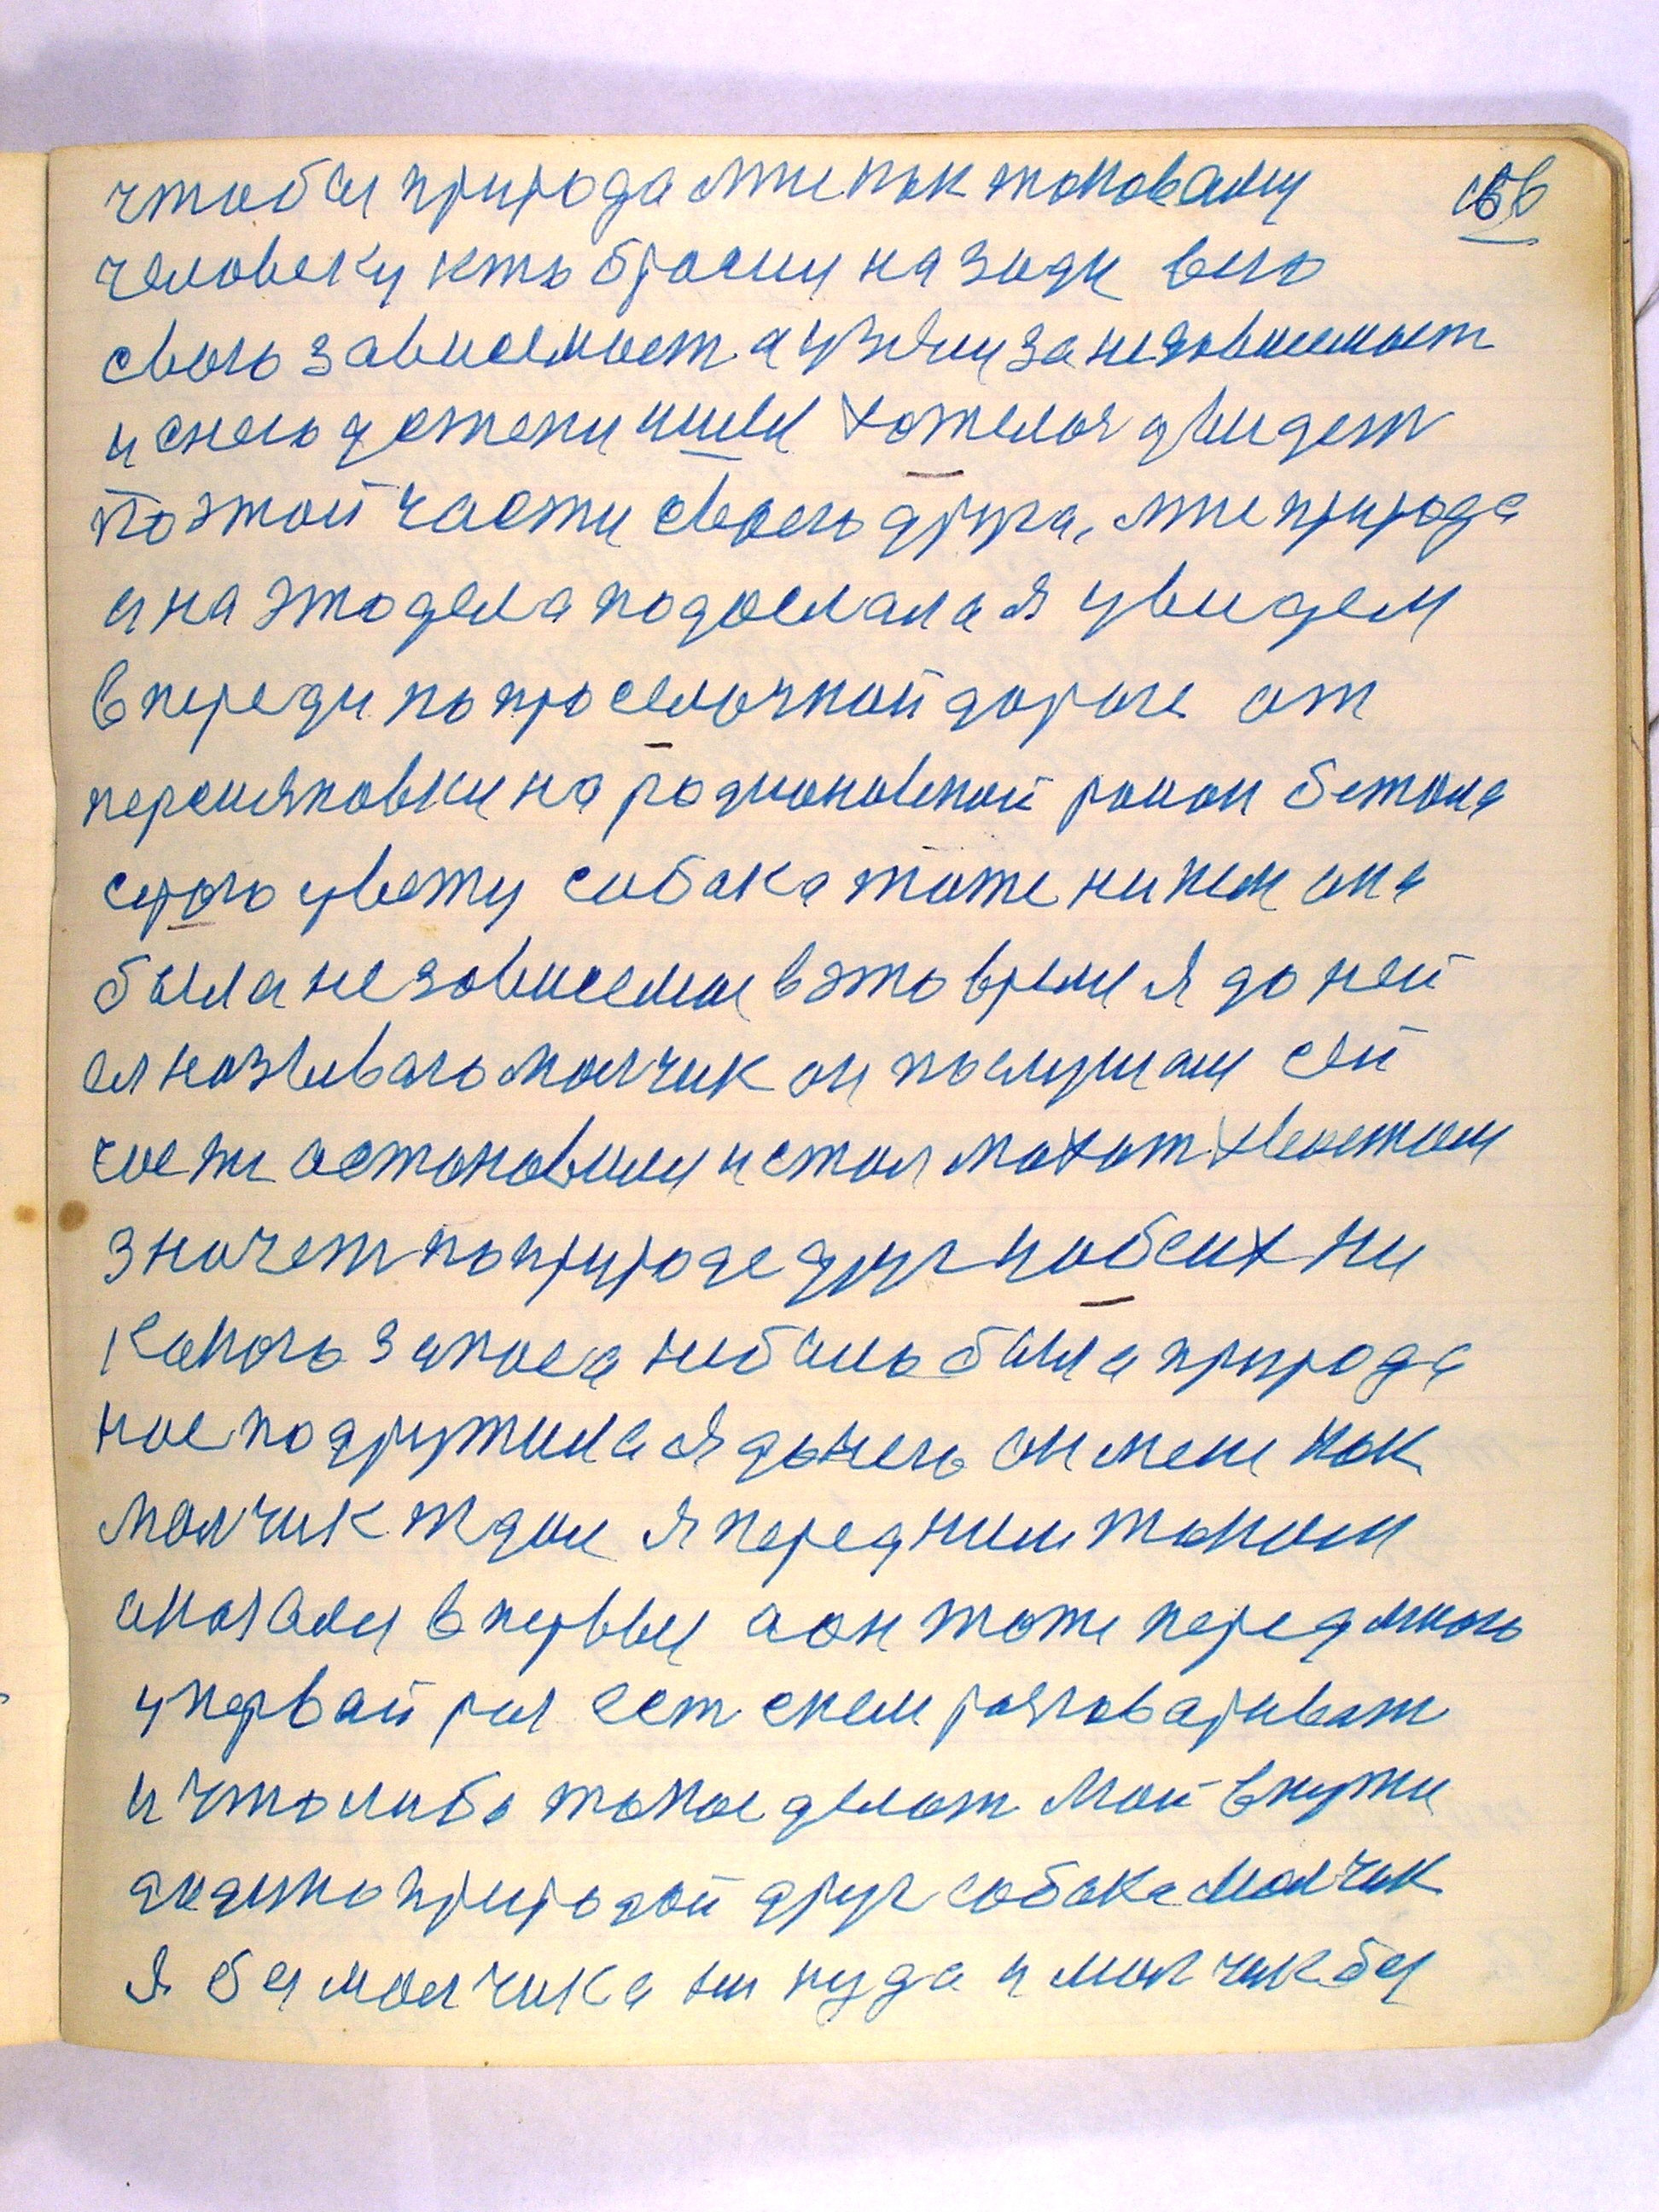 чтобы природа мне как таковаму 156
человеку кто бросил назади всю
свою зависемост а узялся за независемост
и с нею у степи пшел хотелся увидет
по этой части своего друга, мне природа
и на это дела подослала я увидел
впереди по проселочной дороге от
персияновки на родионовской райои бежала
серого цвету собака тоже ни кем она
была не зовисемая в это время я до ней
ея називаю малчик он послушал сей
час же астановился и стал махат хвостом
значет по природе друг у обоих ни
какого запаса небыло была природа
нас подружила я до него он меня как
малчик ждал я перед ним таким
оказался впервые а он тоже перед мною
у первай раз ест скем разговариват
и что либо такое делат мой в пути
дидино природой друг собака малчик
я без малчика ни куда и малчик без